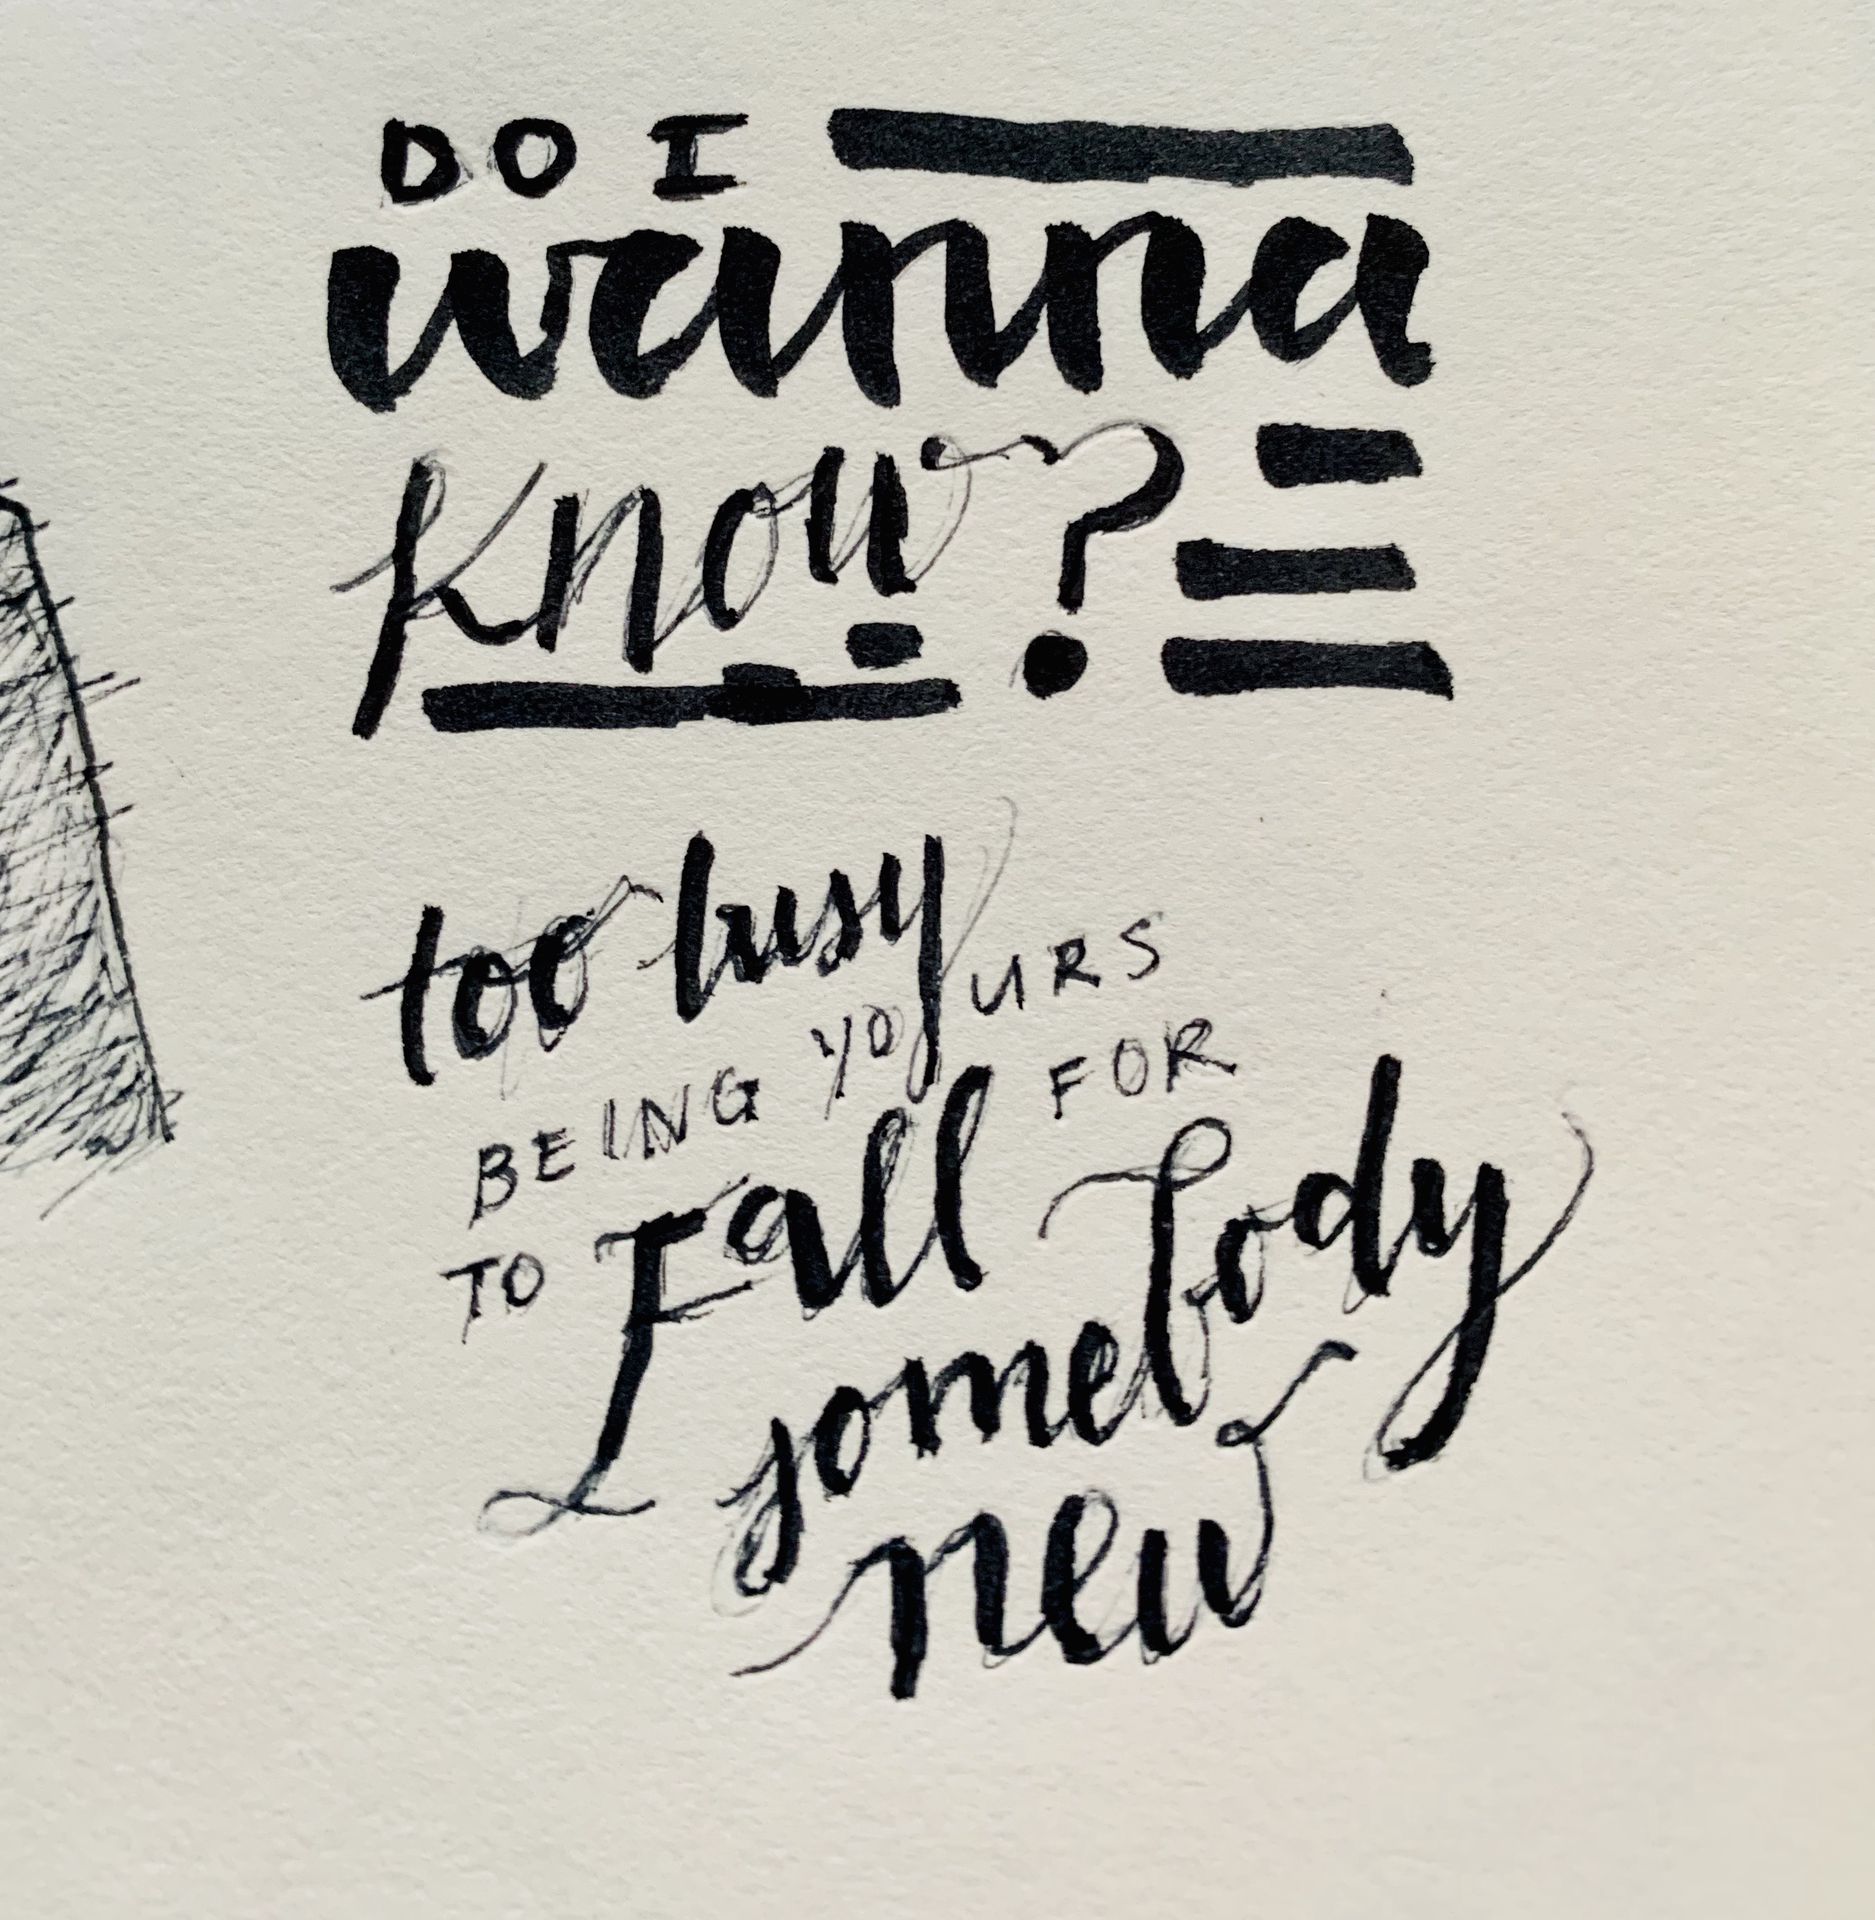 DO I
wanna
know?
too busy
BEING YOURS
TO Fall FOR
somebody
new